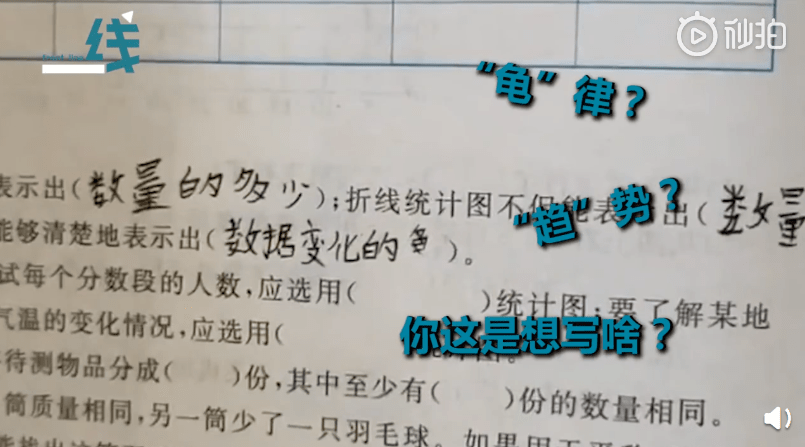 一线
秒拍
“龟”律？
表示出(数量的多少);折线统计图不但能表示出(数量
“趋”势？
能够清楚地表示出(数据变化的
)。
试每个分数段的人数,应选用(　　)统计图;要了解某地
气温的变化情况,应选用(
你这是想写啥？
待测物品分成(　　)份,其中至少有(　　)份的数量相同。
筒质量相同,另一筒少了一只羽毛球。如果用天平